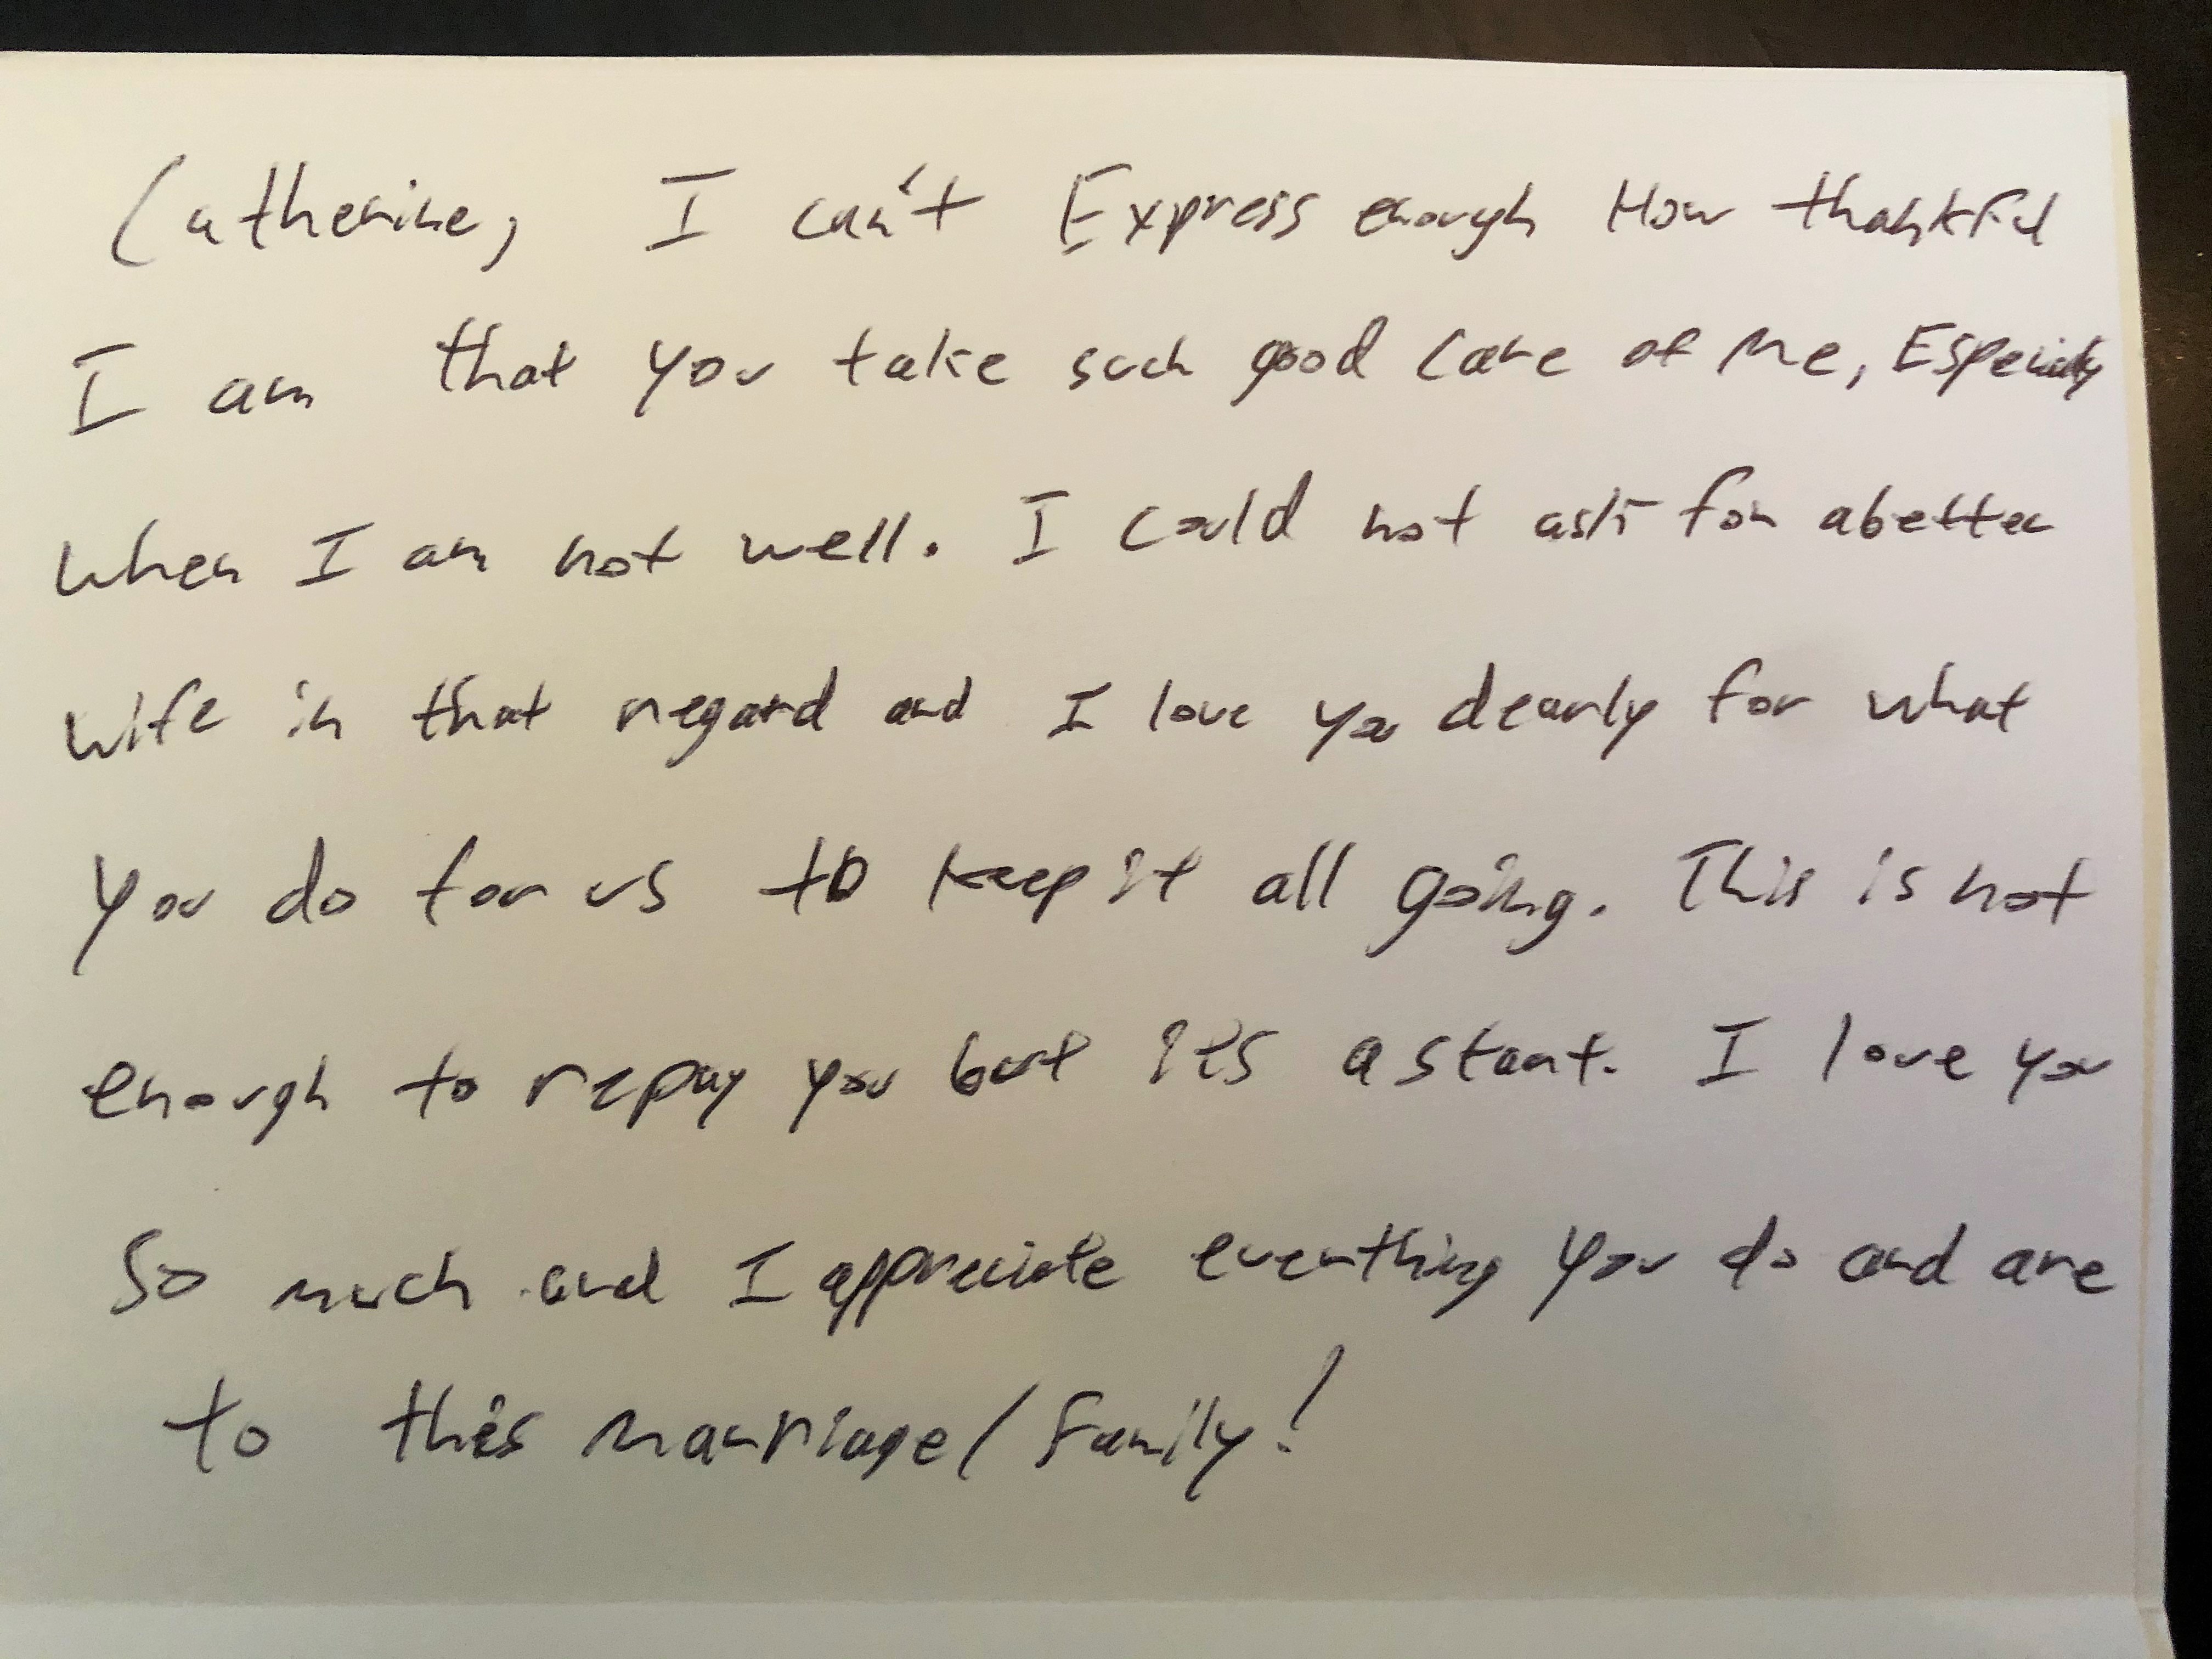 Catherine, I can't Express enough How thankful
I am that you take such good care of Me, Especially
when I am not well. I could not ask for a better
wife in that regard and I love you dearly for what
you do for us to keep it all going. This is not
enough to repay you but its a start. I love you
So much and I appreciate everything you do and are
to this marriage/family!